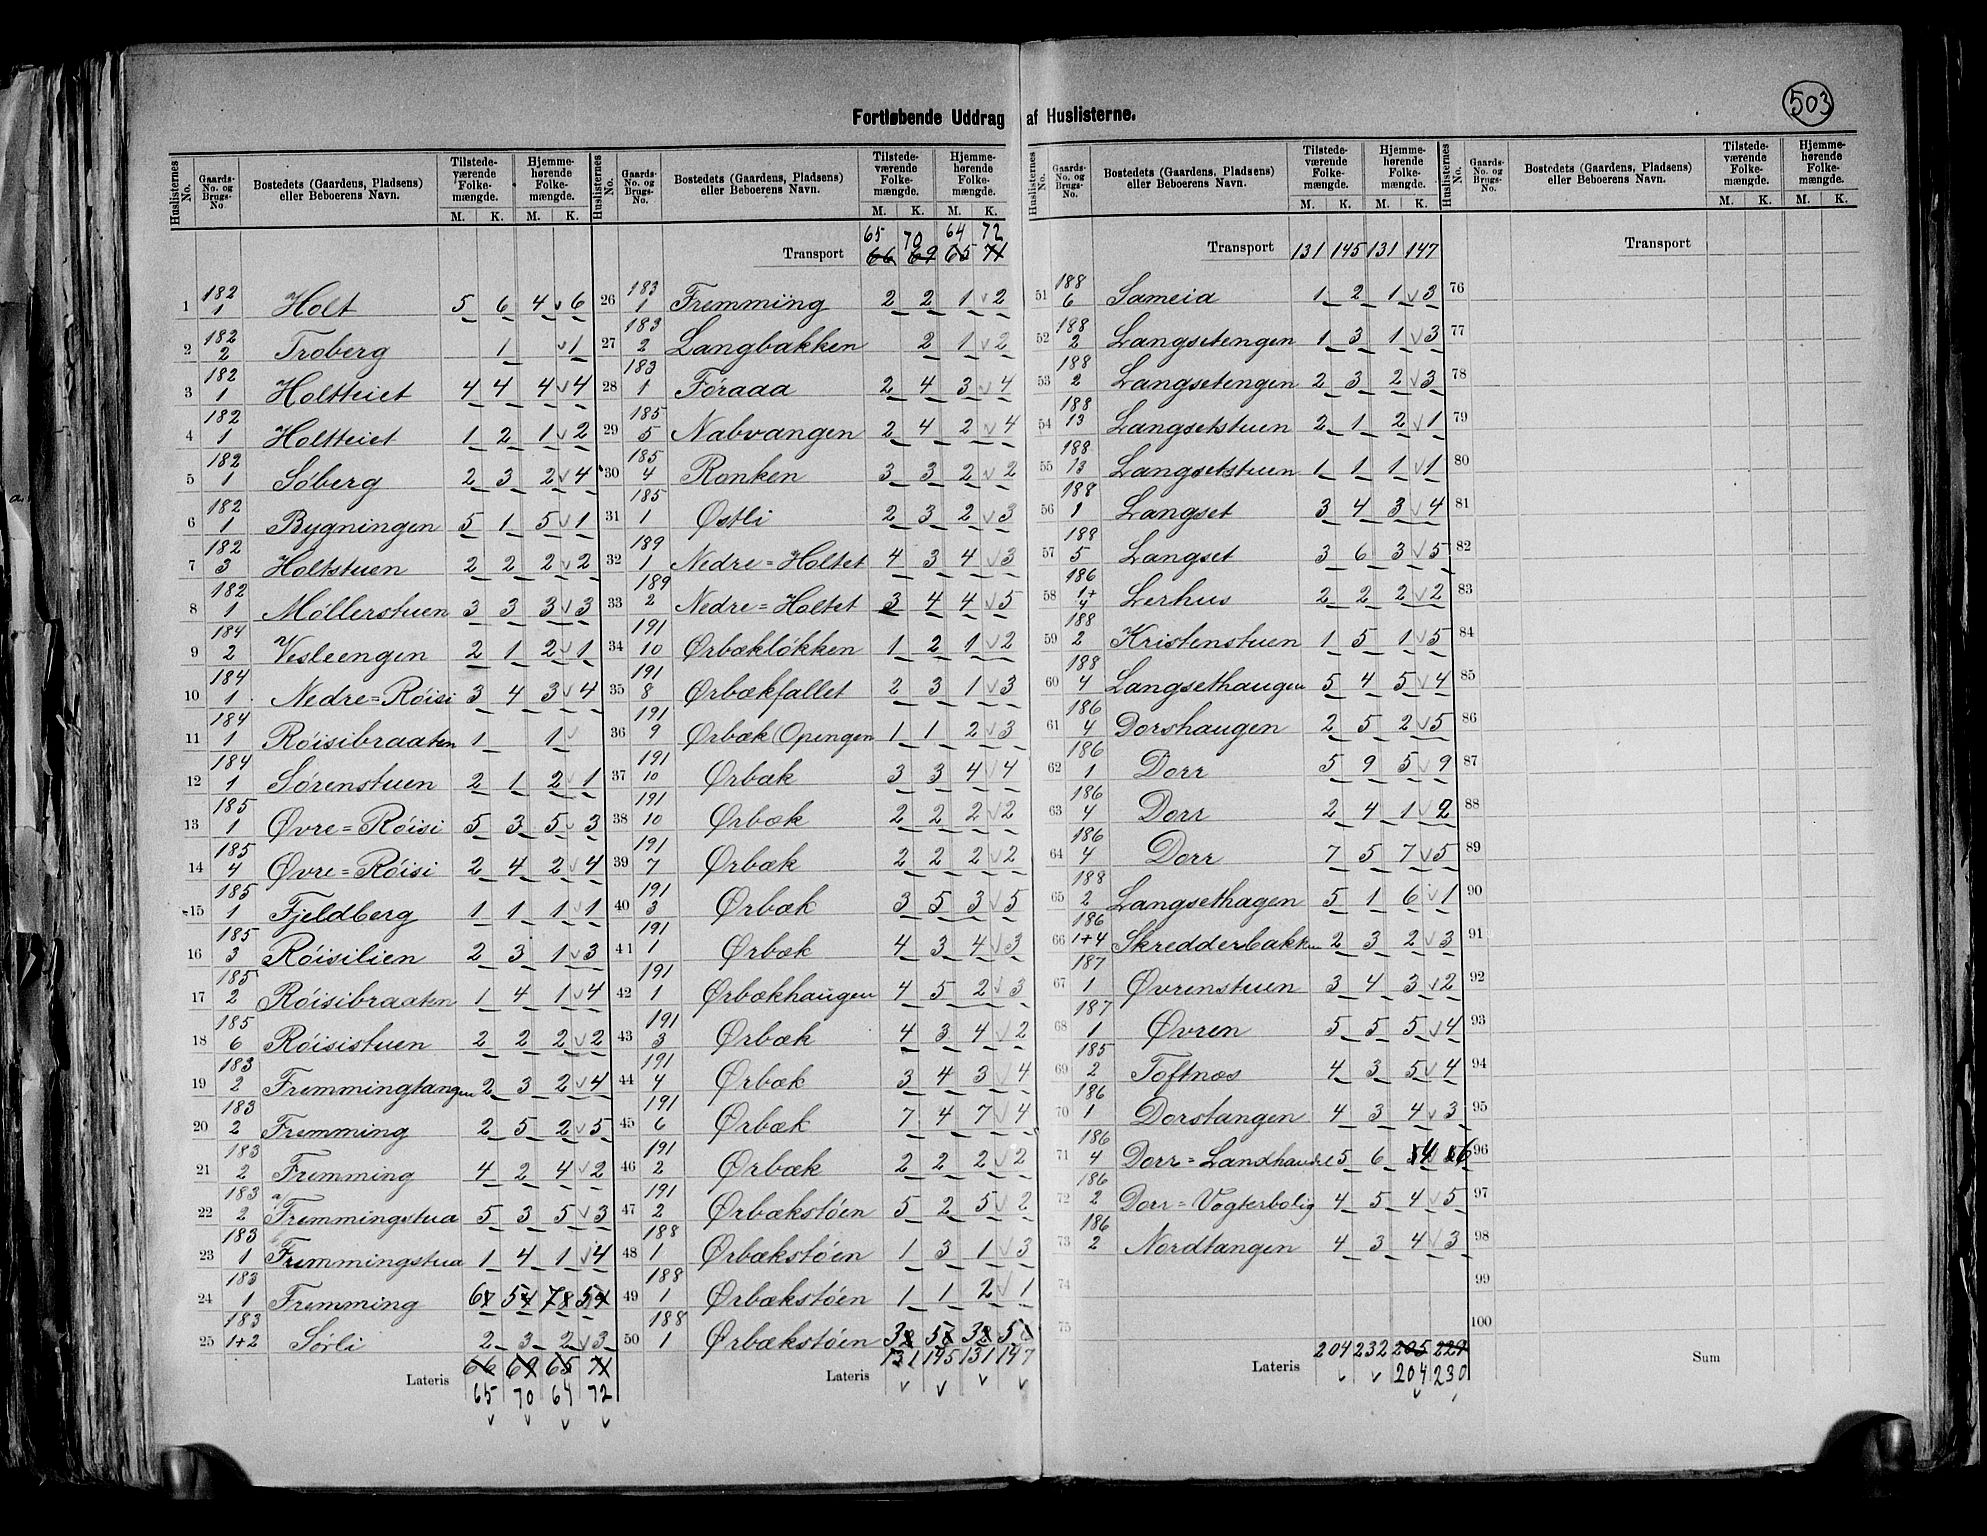 503
Fortløbende Uddrag af Huslisterne.
Huslisternes No. Gaards-No. og Brugs-No. Bostedets (Gaardens, Pladsens) eller Beboerens Navn. Tilstedeværende Folkemængde. M. K. Hjemmehørende Folkemængde. M. K.
1 182/1 Holt 5 6 4 6
2 182/2 Troberg 1 1
3 182/1 Holtteiet 4 4 4 4
4 182/1 Holtteiet 1 2 1 2
5 182/1 Søberg 2 3 2 4
6 182/1 Bygningen 5 1 5 1
7 182/3 Holtstuen 2 2 2 2
8 182/1 Møllerstuen 3 3 3 3
9 184/2 Vesleengen 2 1 2 1
10 184/1 Nedre=Röisi 3 4 3 4
11 184/1 Röisibraaten 1 1
12 184/1 Sørenstuen 2 1 2 1
13 185/1 Øvre=Röisi 5 3 5 3
14 185/4 Øvre=Röisi 2 4 2 4
15 185/1 Fjeldberg 1 1 1 1
16 185/3 Röisilien 2 3 1 3
17 185/2 Röisibraaten 1 4 1 4
18 185/6 Röisistuen 2 2 2 2
19 183/2 Fremmingtangen 2 3 2 4
20 183/2 Fremming 2 5 2 5
21 183/2 Fremming 4 2 4 2
22 183/2 Fremmingstua 5 3 5 3
23 183/1 Fremmingstua 1 4 1 4
24 183/1 Fremming 6 5 7 5
25 183/1+2 Sørli 2 3 2 3
Lateris 66 69 65 71
65 70 64 72
65 70 64 72
Transport 66 69 65 71
26 183/1 Fremming 2 2 1 2
27 183/2 Langbakken 2 1 2
28 183/1 Føraaa 2 4 3 4
29 185/5 Nabvangen 2 4 2 4
30 185/4 Ronken 3 3 2 2
31 185/1 Østli 2 3 2 3
32 189/1 Nedre=Holtet 4 3 4 3
33 189/2 Nedre=Holtet 3 4 4 5
34 191/10 Ørbækløkken 1 2 1 2
35 191/8 Ørbækfallet 2 3 1 3
36 191/9 Ørbæk (Opengen 1 1 2 3
37 191/10 Ørbæk 3 3 4 4
38 191/10 Ørbæk 2 2 2 2
39 191/7 Ørbæk 2 2 2 2
40 191/3 Ørbæk 3 5 3 5
41 191/1 Ørbæk 4 3 4 3
42 191/1 Ørbækhaugen 4 5 2 3
43 191/3 Ørbæk 4 3 4 2
44 191/4 Ørbæk 3 4 3 4
45 191/6 Ørbæk 7 4 7 4
46 191/2 Ørbæk 2 2 2 2
47 191/2 Ørbækstøen 5 2 5 2
48 188/1 Ørbækstøen 1 3 1 3
49 188/1 Ørbækstøen 1 1 2 1
50 188/1 Ørbækstøen 3 5 3 5
Lateris 131 145 131 147
Huslisternes No. Gaards-No. og Brugs-No. Bostedets (Gaardens, Pladsens) eller Beboerens Navn. Tilstedeværende Folkemængde. M. K. Hjemmehørende Folkemængde. M. K.
Transport 131 145 131 147
51 188/6 Sameia 1 2 1 3
52 188/2 Langsetengen 1 3 1 3
53 188/2 Langsetengen 2 3 2 3
54 188/13 Langsetstuen 2 1 2 1
55 188/13 Langsetstuen 1 1 1 1
56 188/1 Langset 3 4 3 4
57 188/5 Langset 3 6 3 5
58 186/1+4 Lerhus 2 2 2 2
59 188/2 Kristenstuen 1 5 1 5
60 188/4 Langsethaugen 5 4 5 4
61 186/4 Dorshaugen 2 5 2 5
62 186/1 Dorr 5 9 5 9
63 186/4 Dorr 2 4 1 2
64 186/4 Dorr 7 5 7 5
65 188/2 Langsethagen 5 1 6 1
66 186/1+4 Skredderbakken 2 3 2 3
67 187/1 Øvrenstuen 3 4 3 2
68 187/1 Øvren 5 5 5 4
69 185/2 Toftnæs 4 3 5 4
70 186/1 Dorstangen 4 3 4 3
71 186/4 Dorr=Landhandel 5 6 4 6
72 186/2 Dorr=Vogterbolig 4 5 4 5
73 186/2 Nordtangen 4 3 4 3
74
75
Lateris 204 232 205 229
204 230
Transport
76
77
78
79
80
81
82
83
84
85
86
87
88
89
90
91
92
93
94
95
96
97
98
99
100
Sum